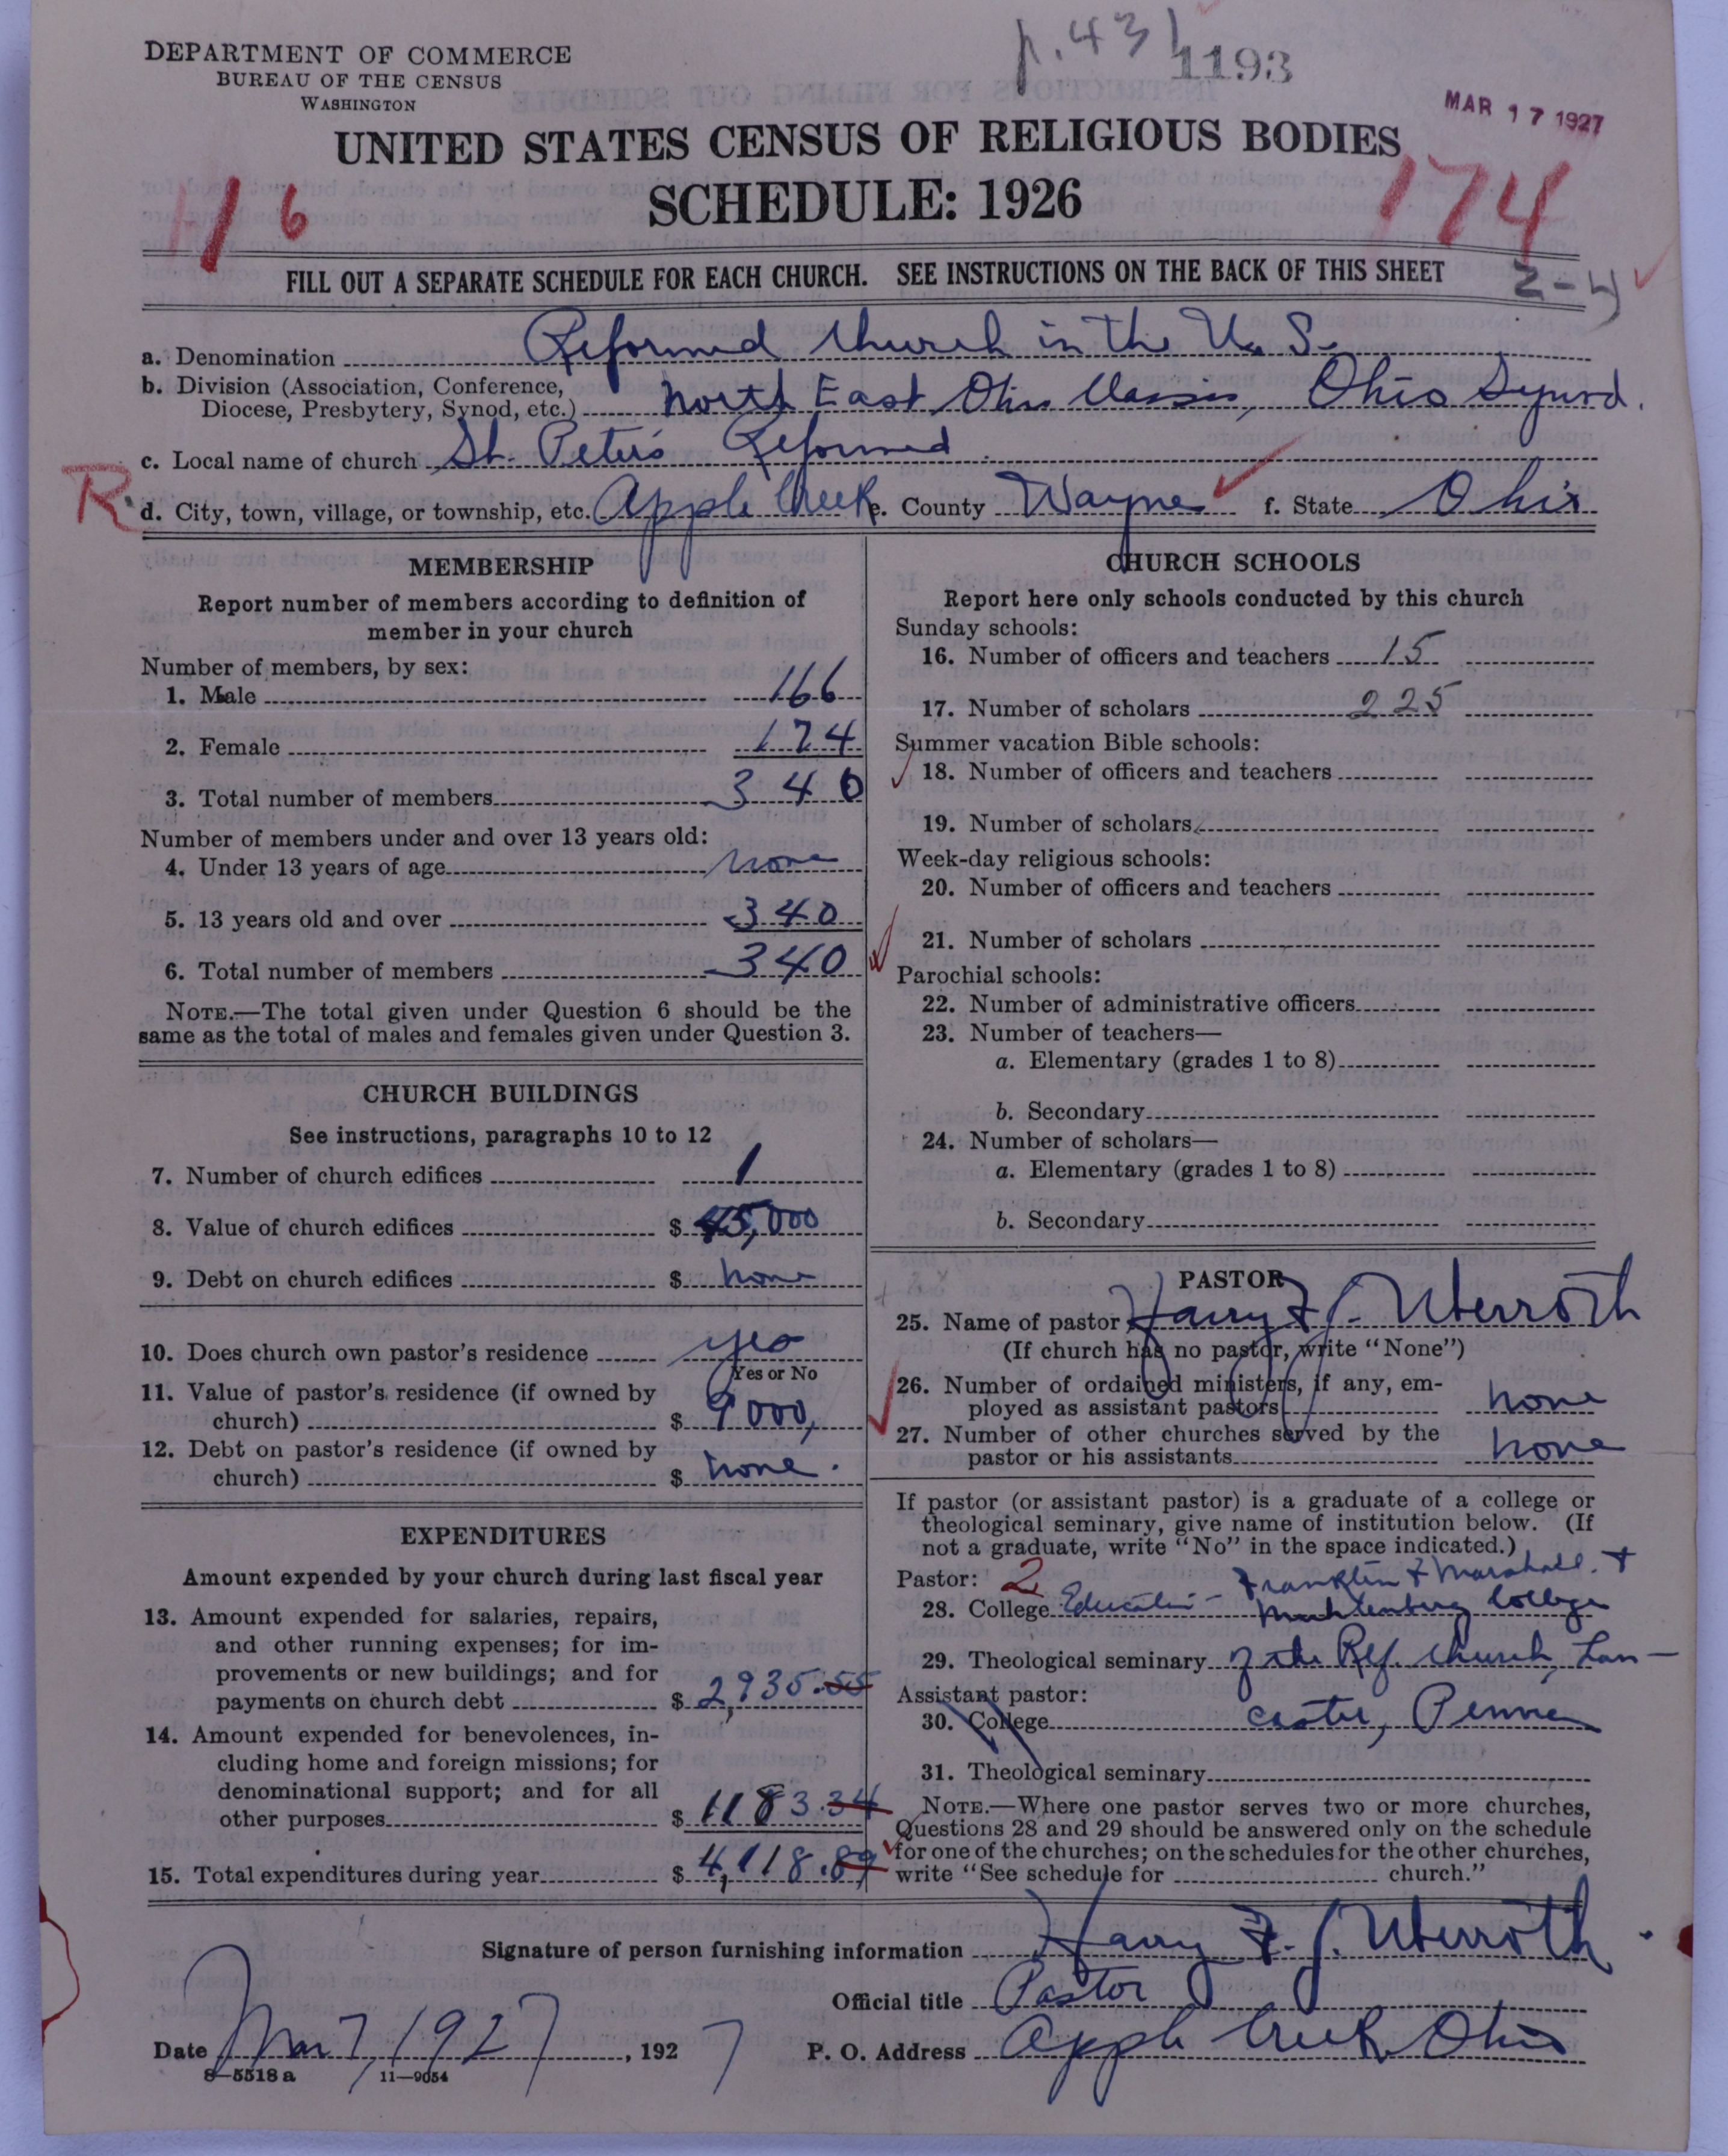 p. 431
1193
DEPARTMENT OF COMMERCE
BUREAU OF THE CENSUS
WASHINGTON
MAR 17 1927
UNITED STATES CENSUS OF RELIGIOUS BODIES
SCHEDULE: 1926
116
174
FILL OUT A SEPARATE SCHEDULE FOR EACH CHURCH. SEE INSTRUCTIONS ON THE BACK OF THIS SHEET
2-4
a. Denomination Reformed Church in the U. S.
b. Division (Association, Conference,
Diocese, Presbytery, Synod, etc.) North East Ohio Classis, Ohio Synod.
c. Local name of church St. Peter's Reformed
R d. City, town, village, or township, etc. Apple Creek e. County Wayne f. State Ohio
MEMBERSHIP
Report number of members according to definition of
member in your church
Number of members, by sex:
1. Male 166
2. Female 174
3. Total number of members 340
Number of members under and over 13 years old:
4. Under 13 years of age none
5. 13 years old and over 340
6. Total number of members 340
NOTE.—The total given under Question 6 should be the
same as the total of males and females given under Question 3.
CHURCH BUILDINGS
See instructions, paragraphs 10 to 12
7. Number of church edifices 1
8. Value of church edifices $ 45,000
9. Debt on church edifices $ none
10. Does church own pastor's residence yes
Yes or No
11. Value of pastor's residence (if owned by
church) $ 9000,
12. Debt on pastor's residence (if owned by
church) $ none.
EXPENDITURES
Amount expended by your church during last fiscal year
13. Amount expended for salaries, repairs,
and other running expenses; for im-
provements or new buildings; and for
payments on church debt $ 2,935.55
14. Amount expended for benevolences, in-
cluding home and foreign missions; for
denominational support; and for all
other purposes $ 1183.34
15. Total expenditures during year $ 4,118.89
CHURCH SCHOOLS
Report here only schools conducted by this church
Sunday schools:
16. Number of officers and teachers 15
17. Number of scholars 225
Summer vacation Bible schools:
18. Number of officers and teachers
19. Number of scholars
Week-day religious schools:
20. Number of officers and teachers
21. Number of scholars
Parochial schools:
22. Number of administrative officers
23. Number of teachers—
a. Elementary (grades 1 to 8)
b. Secondary
24. Number of scholars—
a. Elementary (grades 1 to 8)
b. Secondary
PASTOR
25. Name of pastor Harry F. J. Uberroth
(If church has no pastor, write "None")
26. Number of ordained ministers, if any, em-
ployed as assistant pastors none
27. Number of other churches served by the
pastor or his assistants none
If pastor (or assistant pastor) is a graduate of a college or
theological seminary, give name of institution below. (If
not a graduate, write "No" in the space indicated.)
Pastor: 2 Franklin & Marshall. +
28. College Education - Muhlenberg College
29. Theological seminary of the Ref. Church, Lan-
Assistant pastor:
30. College caster, Penna
31. Theological seminary
NOTE.—Where one pastor serves two or more churches,
Questions 28 and 29 should be answered only on the schedule
for one of the churches; on the schedules for the other churches,
write "See schedule for church."
Signature of person furnishing information Harry F. J. Uberroth
Official title Pastor
Date Mar 7, 1927, 1927 P. O. Address Apple Creek Ohio
8-5518 a 11—9054